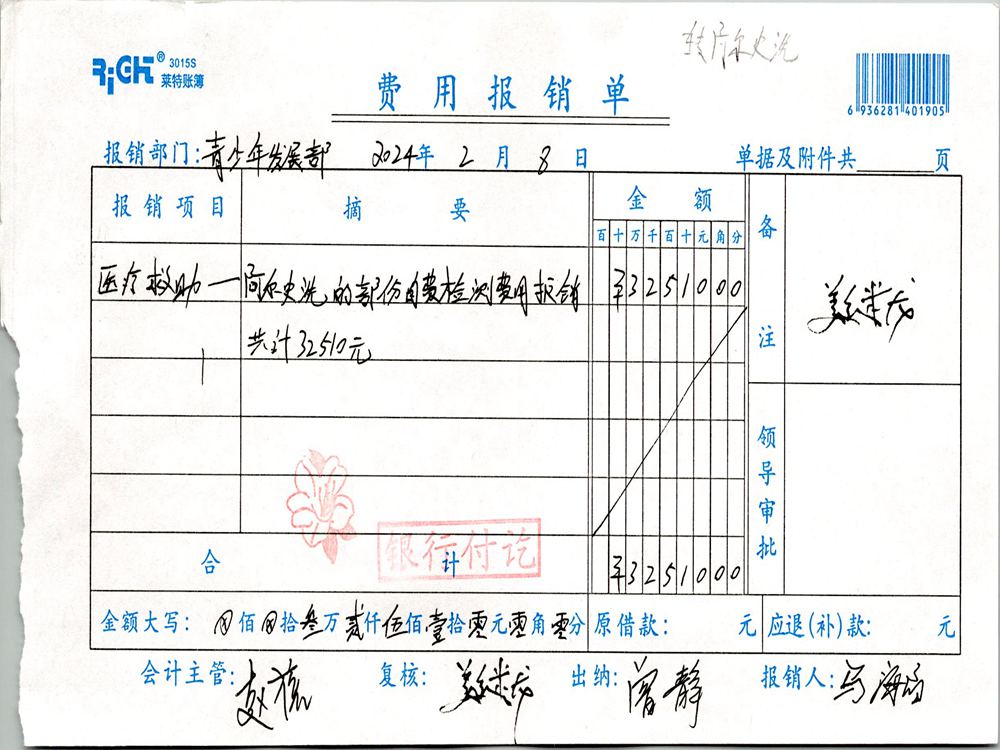 转阿尔史洗
RiGHT® 3015S
莱特账簿
费用报销单
6 936281 401905
报销部门:青少年发展部 2024年 2 月 8 日 单据及附件共 页
报销项目 摘要 金额 备注
百 十 万 千 百 十 元 角 分
医疗救助— 阿尔史洗的部份自费检测费用报销 ¥3251000
共计32510元
领导审批
银行付讫
合计 ¥3251000
金额大写: ⊗佰⊗拾叁万贰仟伍佰壹拾零元零角零分 原借款: 元 应退(补)款: 元
会计主管: 复核: 出纳:曾静 报销人:马海